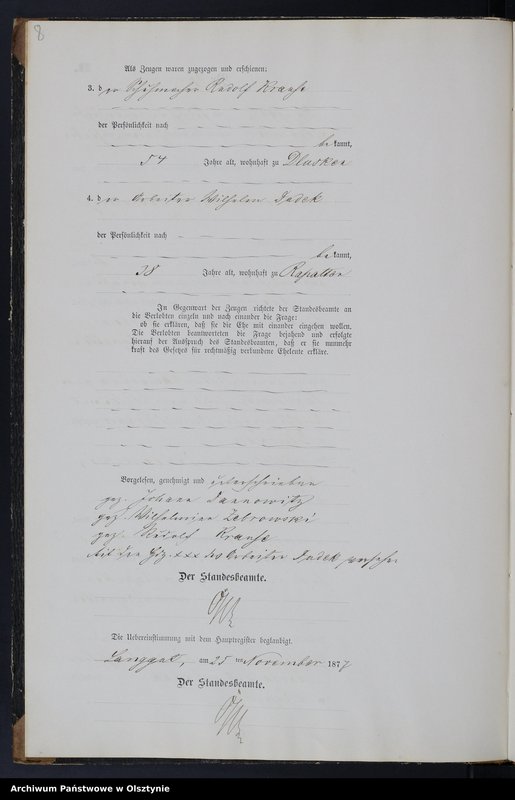 8
Als Zeugen waren zugezogen und erschienen:
3. der Schuhmacher Rudolf Krause
der Persönlichkeit nach
be kannt,
54 Jahre alt, wohnhaft zu Dlusken
4. der Arbeiter Wilhelm Dudek
der Persönlichkeit nach
be kannt,
38 Jahre alt, wohnhaft zu Rapatten
In Gegenwart der Zeugen richtete der Standesbeamte an
die Verlobten einzeln und nach einander die Frage:
ob sie erklären, daß sie die Ehe mit einander eingehen wollen.
Die Verlobten beantworteten die Frage bejahend und erfolgte
hierauf der Ausspruch des Standesbeamten, daß er sie nunmehr
kraft des Gesetzes für rechtmäßig verbundene Eheleute erkläre.
Vorgelesen, genehmigt und unterschrieben
gez. Johann
gez. Wilhelmine Zebrowski
gez. Rudolf Krause
Mit den xxx des Arbeiter Dudek versehen
Der Standesbeamte.
Die Uebereinstimmung mit dem Hauptregister beglaubigt.
Langgut, am 25 ten November 1877
Der Standesbeamte.
Archiwum Państwowe w Olsztynie